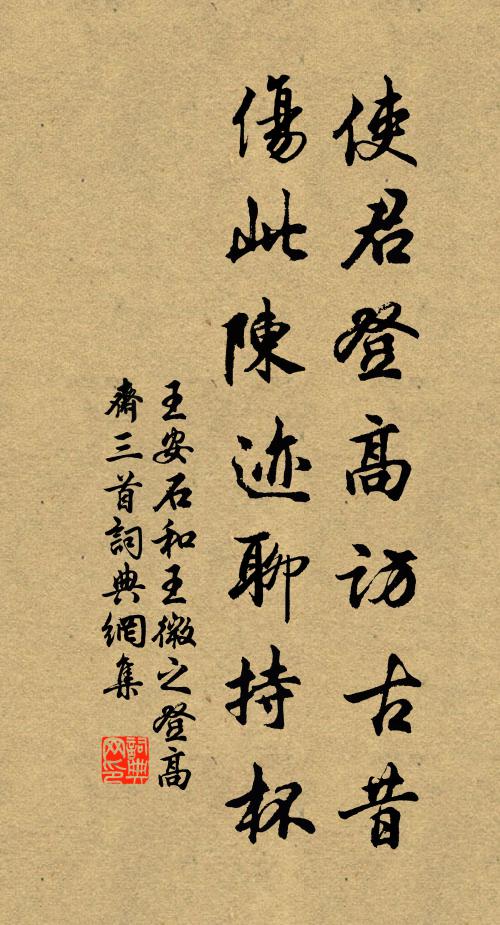 使君登高訪古昔
傷此陳迹聊持杯
王安石和王微之登高
齋三首詞典網集
詞典
网印